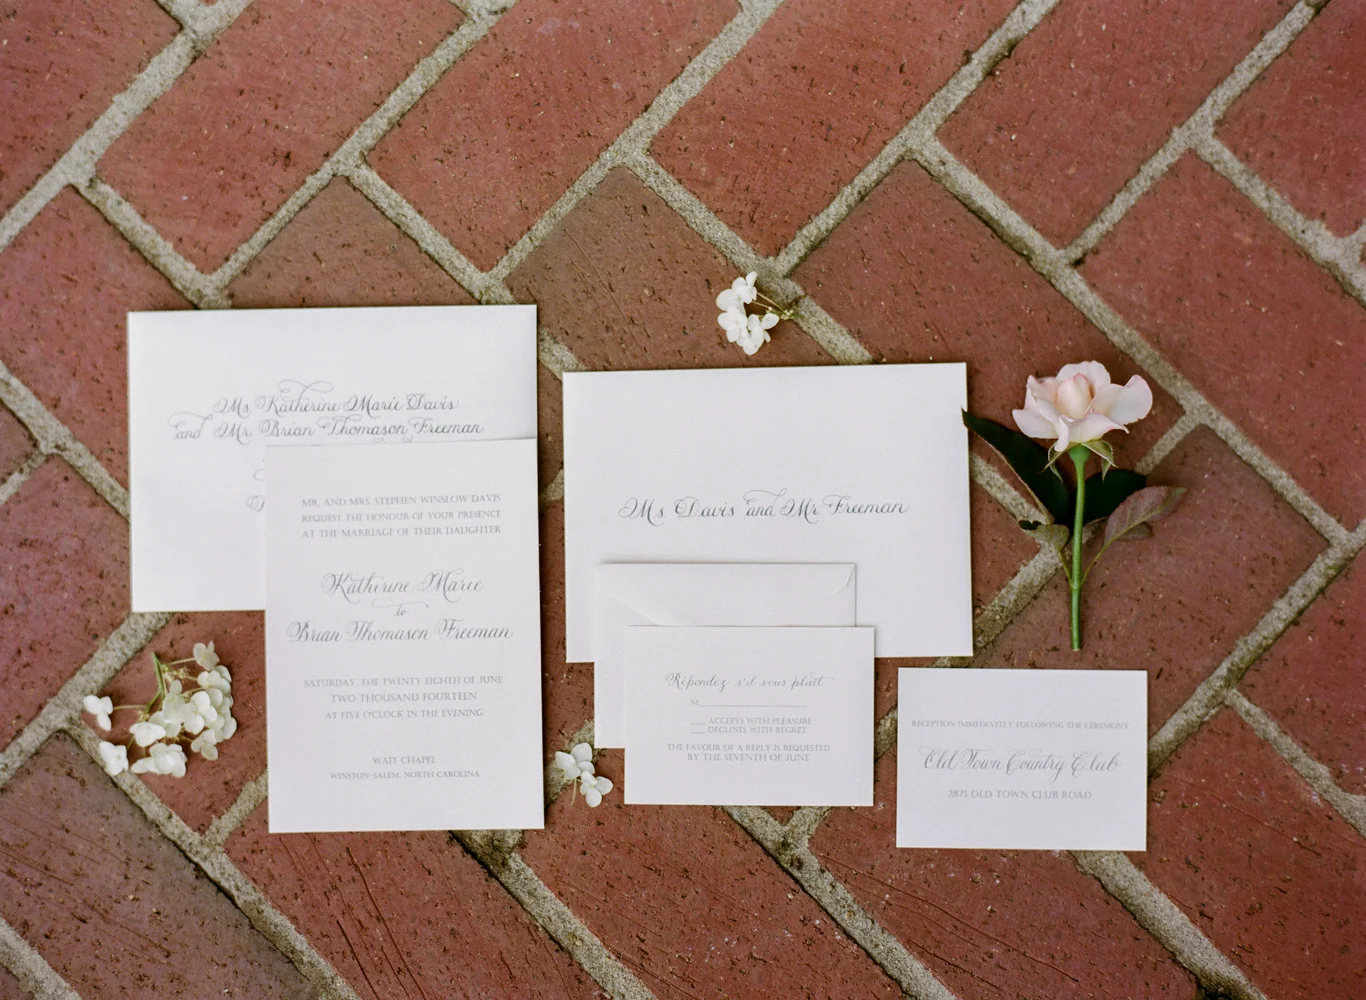 Ms. Katherine Marie Davis
and Mr. Brian Thomason Freeman
MR. AND MRS. STEPHEN WINSLOW DAVIS
REQUEST THE HONOUR OF YOUR PRESENCE
AT THE MARRIAGE OF THEIR DAUGHTER
Katherine Marie
to
Brian Thomason Freeman
SATURDAY, THE TWENTY EIGHTH OF JUNE
TWO THOUSAND FOURTEEN
AT FIVE O'CLOCK IN THE EVENING
WAIT CHAPEL
WINSTON-SALEM, NORTH CAROLINA
Ms. Davis and Mr. Freeman
Répondez s'il vous plaît
M
ACCEPTS WITH PLEASURE
DECLINES WITH REGRET
THE FAVOUR OF A REPLY IS REQUESTED
BY THE SEVENTH OF JUNE
RECEPTION IMMEDIATELY FOLLOWING THE CEREMONY
Old Town Country Club
2875 OLD TOWN CLUB ROAD